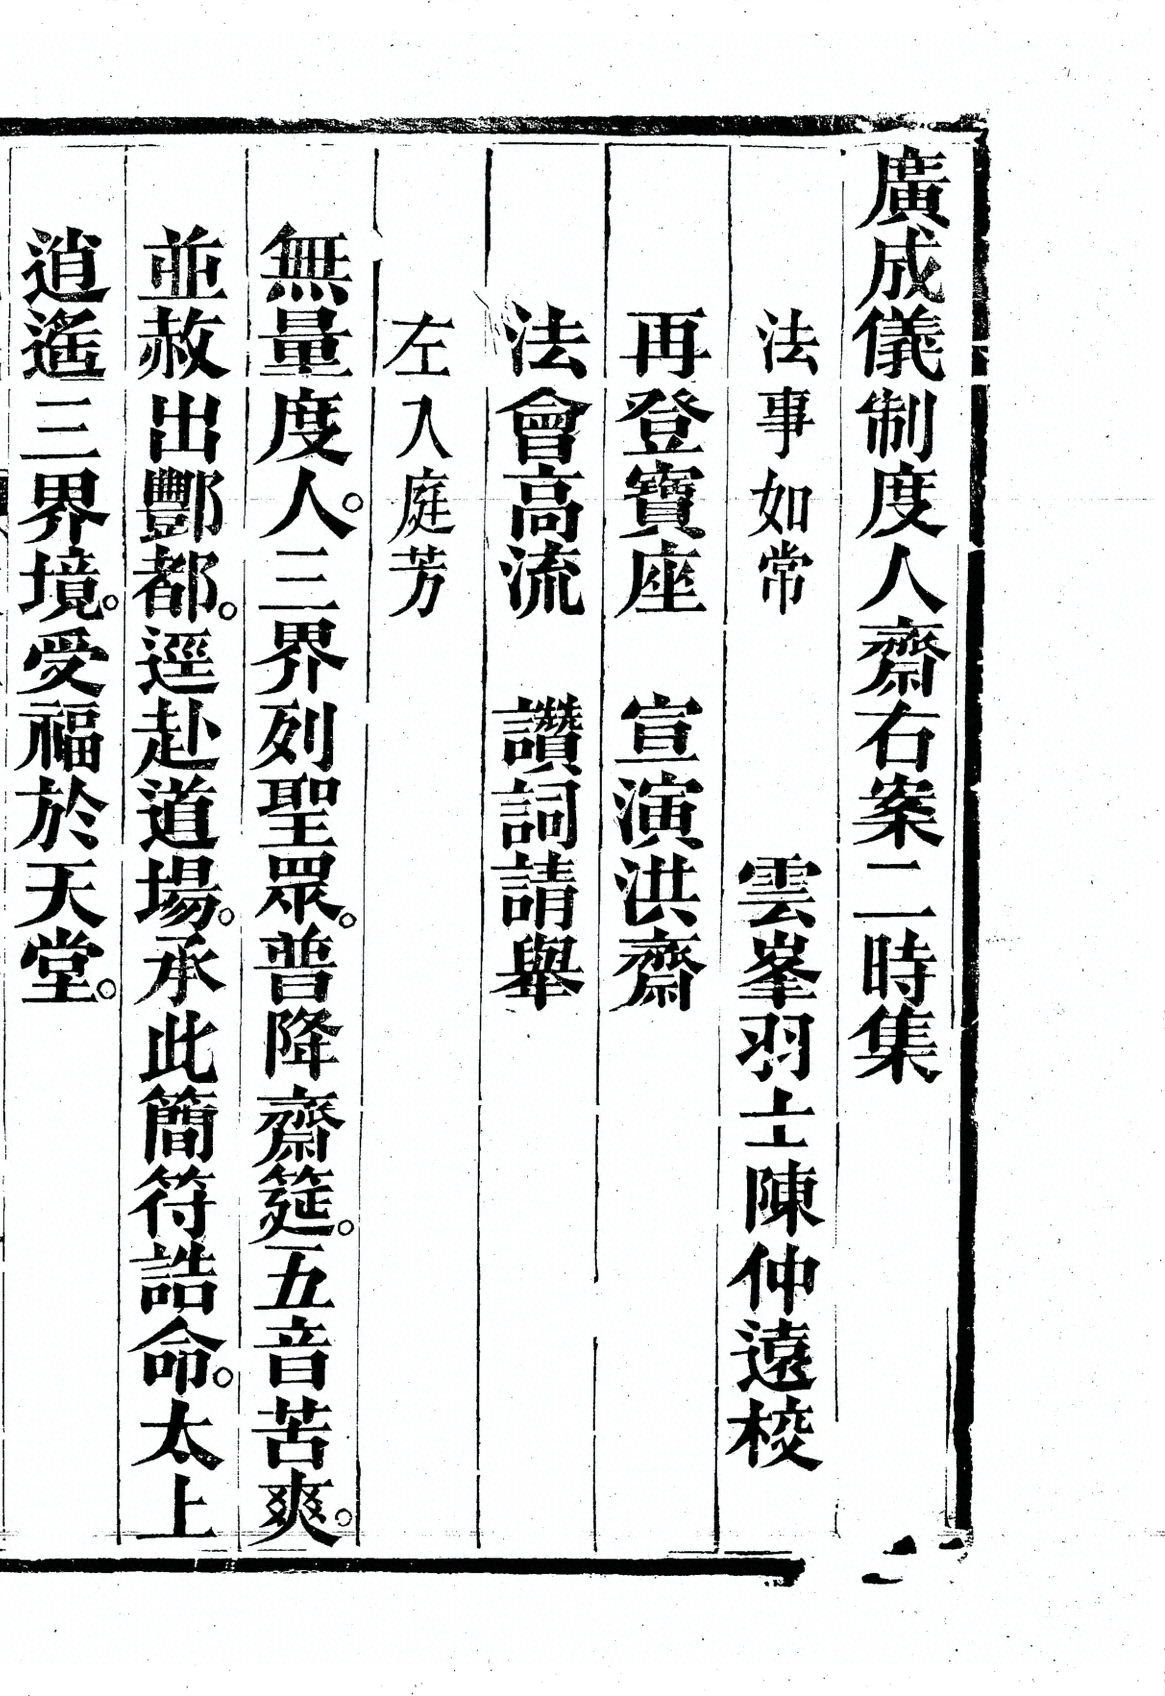 廣成儀制度人齋右案二時集
法事如常　雲峯羽士陳仲遠校
再登寶座　宣演洪齋
法會高流　讚詞請舉
左入庭芳
無量度人。三界列聖眾。普降齋筵。五音苦爽。
並赦出酆都。逕赴道場。承此簡符誥命。太上
逍遙三界境。受福於天堂。